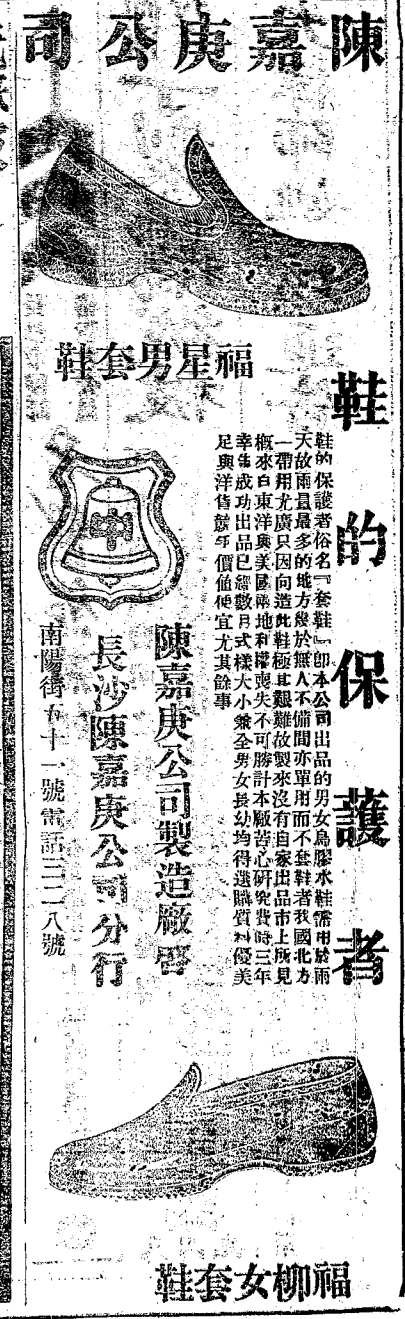 陳嘉庚公司
福星男套鞋
鞋的保護者
鞋的保護者俗名『套鞋』卽本公司出品的男女烏膠水鞋需用於雨
天故雨量最多的地方幾於無人不備間亦單用而不套鞋者我國北方
一帶用尤廣只因向造此鞋極其艱難故製來沒有自家出品市上所見
槪來自東洋與美國兩地利權喪失不可勝計本廠苦心研究費時三年
幸告成功出品已經數月式樣大小兼全男女長幼均得選購質料優美
足與洋貨競爭價値便宜尤其餘事
陳嘉庚公司製造廠啓
長沙陳嘉庚公司分行
南陽街五十一號電話三二八號
中
福柳女套鞋